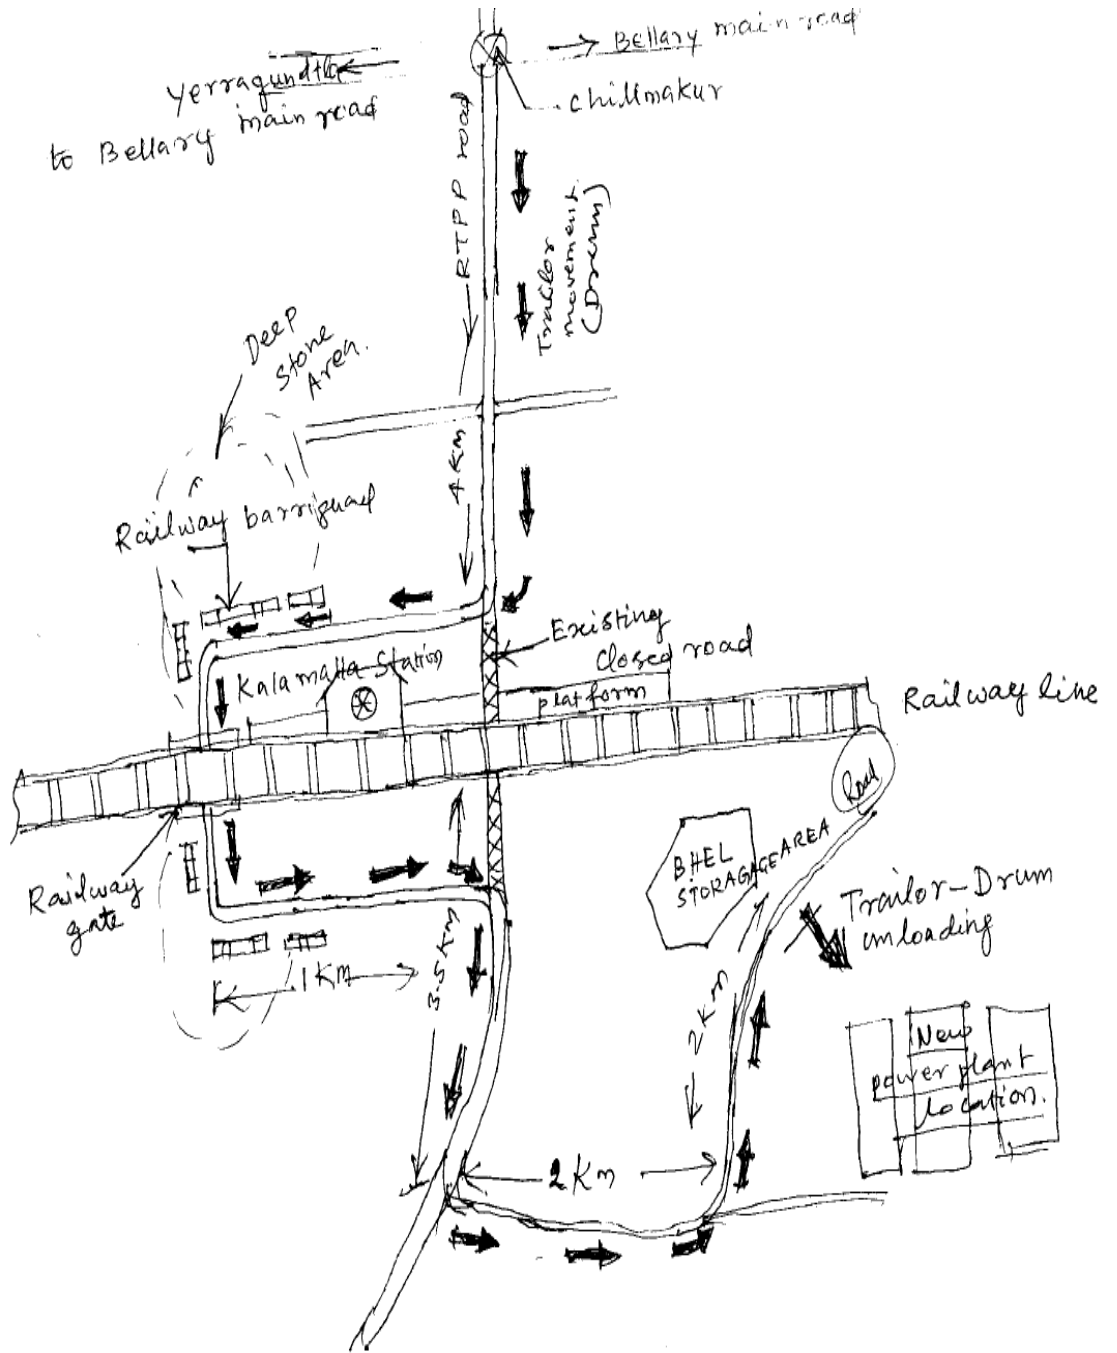 → Bellary main road
Yerraguntla
to Bellary main road
chillmakur
RTPP road
Trailor
movement.
(Drum)
Deep
Stone
Area.
4 Km
Railway barriguad
Existing
closed road
Kalamalla Station
platform
Railway line
Road
BHEL
STORAGAGE AREA
Railway
gate
Trailor-Drum
unloading
1 Km
3.5 Km
2 Km
New
power plant
location.
2 Km